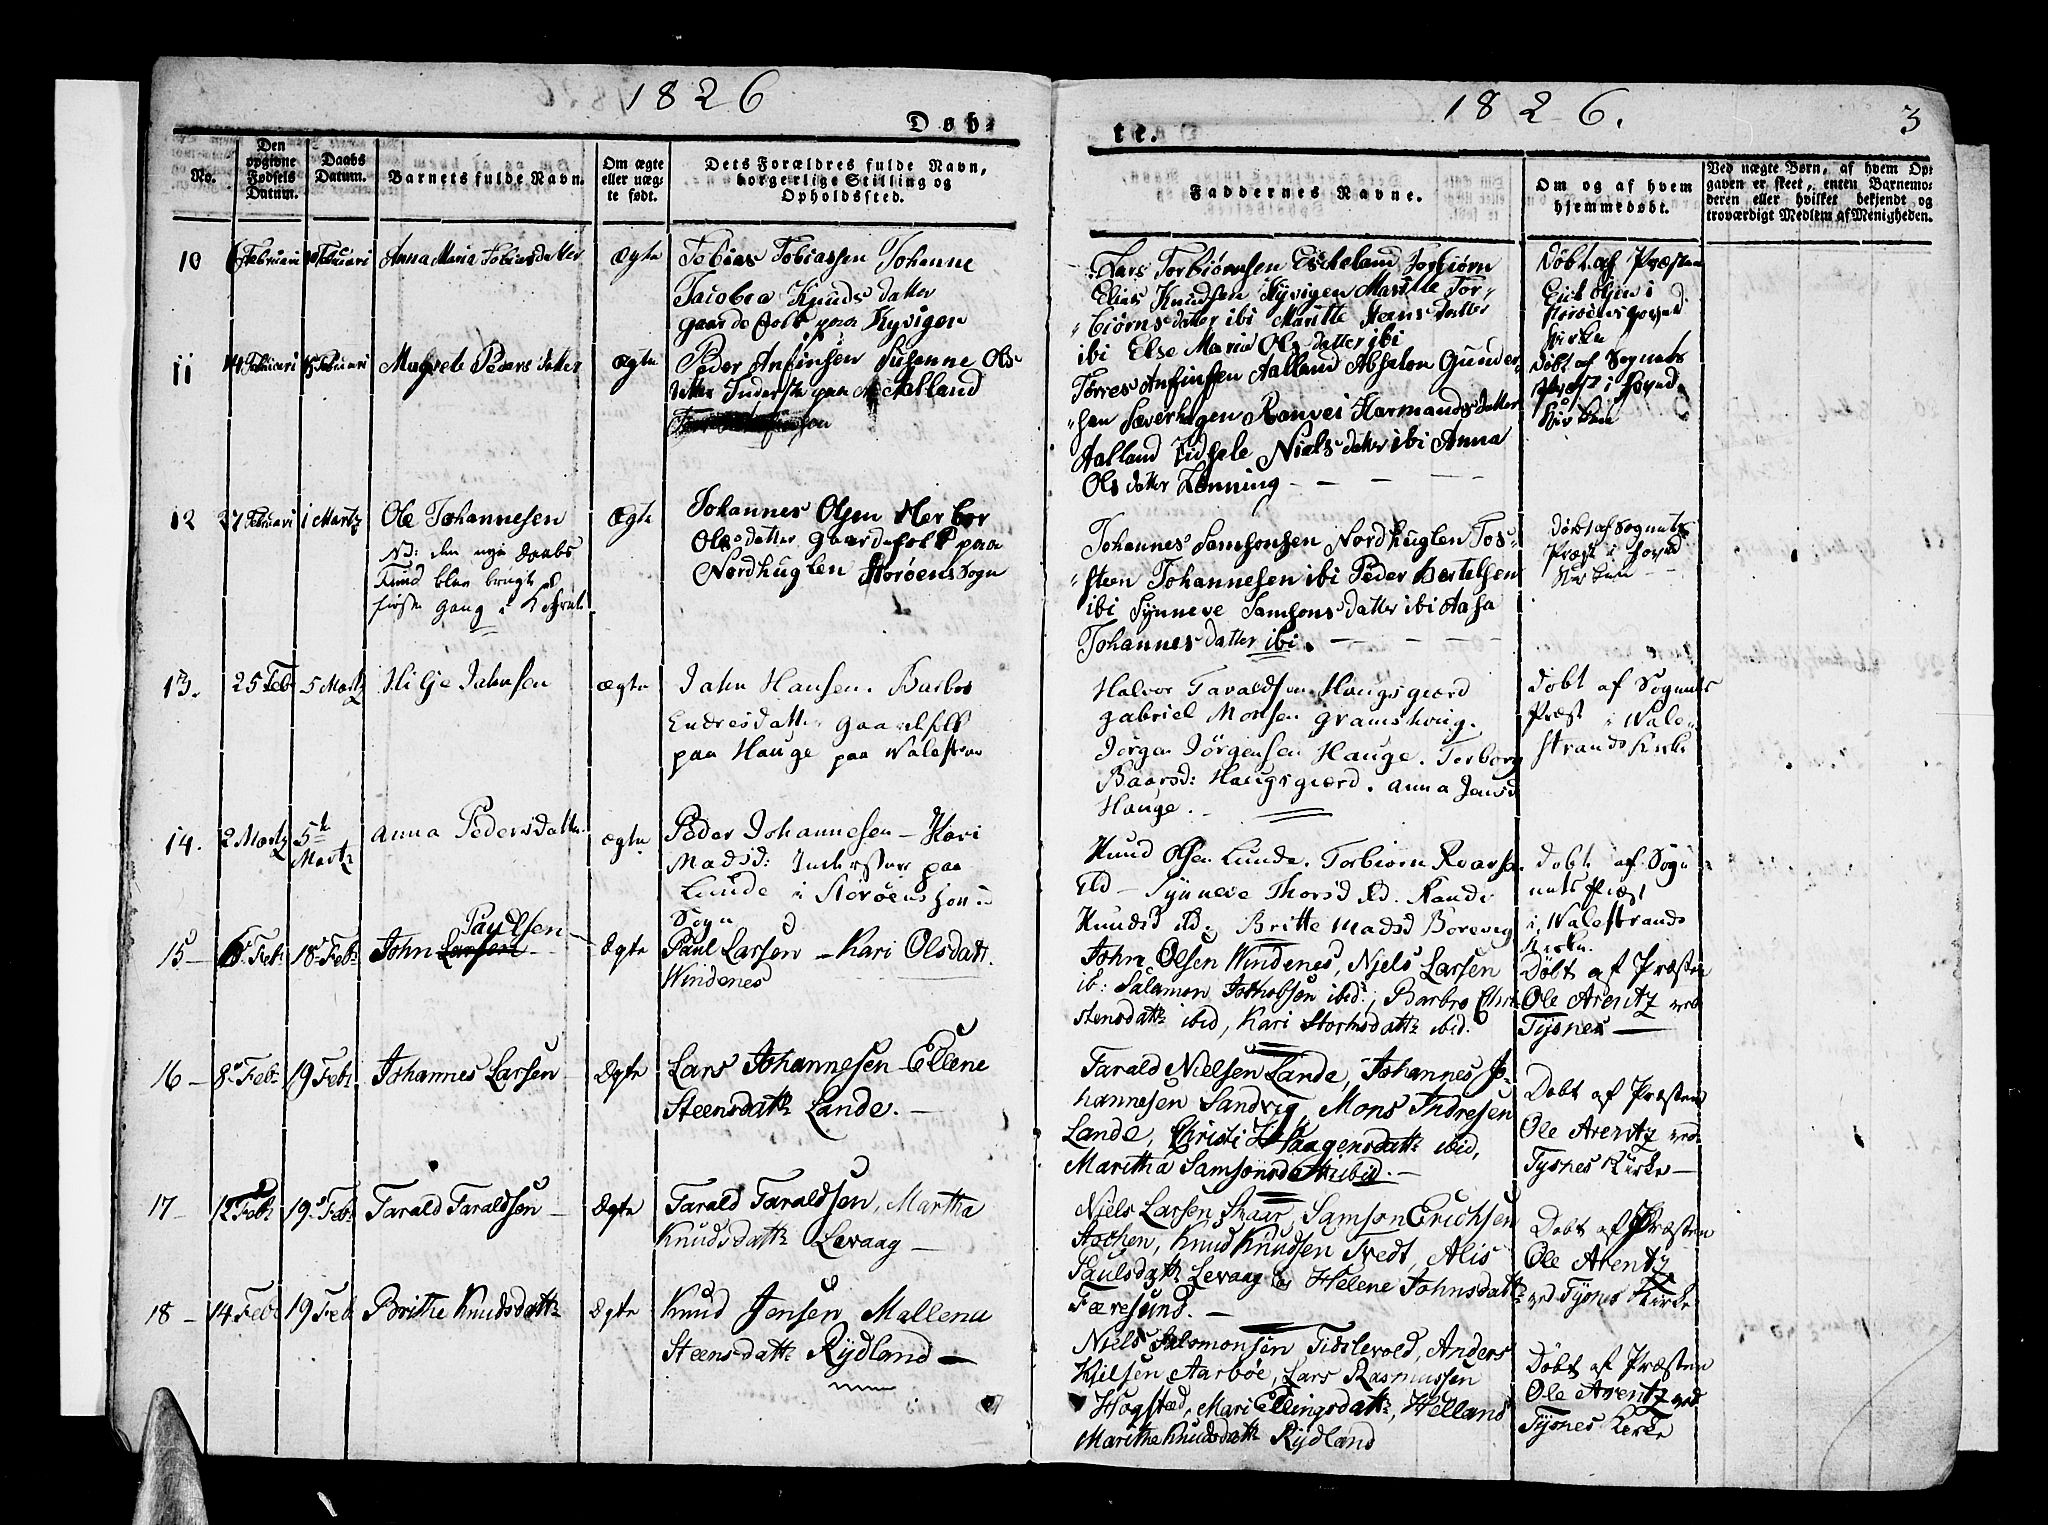 1826
1826.
3
Døb-
te.
No.
Den
opgivne
Fødsels
Datum.
Daabs
Datum.
Barnets fulde Navn.
Om ægte
eller uæg-
te født.
Dets Forældres fulde Navn,
borgerlige Stilling og
Opholdssted.
Faddernes Navne.
Om og af hvem
hjemmedøbt.
Ved uægte Børn, af hvem Op-
gaven er skeet, enten Barnemo-
deren eller hvilket bekjendt og
troværdigt Medlem af Menigheden.
10
6 Februari
Februari
Anna Maria Tobiasdatter
Ægte
Tobias Tobiassen Johanne
Jacobea Knudsdatter
gaardefolk paa Kyvigen
Lars Torbiørnsen Eskeland Torbiørn
Elias Knudsen Kyvigen Maritte Tor-
biørnsdatter ibi Maritte Steensdatter
ibi Else Maria Olsdatter ibi
Døbt af Præsten
Erik Olsen i
Storøens hoved
Kirken
11
14 Februari
15 Februari
Magrete Pedersdatter
Ægte
Peder Anfinsen Susanne Ols-
datter Inderste paa Aalland
Torres Anfinsen Aalland Absalon Gunder-
sen Sæverhagen Ranvei Hermandsdatter
Aalland Nielsdatter ibi Anna
Olsdatter Lønning
Døbt af Sognets
Præst i hoved
Kirken
12
27 Februari
1 Martz
Ole Johannesen
NB: den nye Daabs
Fund blev brugt
første gang i
Ægte
Johannes Olsen Herbor
Olsdatter gaardefolk paa
Nordhuglen Storøens Sogn
Johannes Samsonsen Nordhuglen Tos-
steen Johannesen ibi Peder Bertelsen
ibi Synneve Samsonsdatter ibi Aasa
Johannesdatter ibi.
Døbt af Sognets
Præst i hoved
Kirken
13.
25 Feb
5 Martz
Hilje Jahnsen
ægte
Jahn Hansen. Barbro
Endresdatter Gaardfolk
paa Hauge paa Walestran
Halvor Taraldsen Haugsgierd
gabriel Monsen gramshoug.
Jørgen Jørgensen Hauge. Torborg
Baarsd: Haugsgierd. Anna Jensd
Hauge.
Døbt af Sognets
Præst i Wale-
strands Kirke
14.
2 Martz
5te
Martz
Anna Pedersdatter
ægte
Peder Johannesen - Kari
Madsd: Inderster paa
Lunde i Storøens hov
Sogn
Knud Olsen Lunde. Torbiørn Roars
ibd - Synneve Thorsd ibd. Rande
Knudsd ibd. Britte Madsd Borevig
Døbt af Sog-
nets Præst
i Walestrands
Kirke.
15
6 Feb:
18 Feb:
Paulsen
John Larsen
Ægte
Paul Larsen - Kari Olsdatt.
Windenes
John Olsen Windenes, Niels Larsen
ib: Salamon Jachobsen ibid:, Barbro Chri-
stensdattr ibid, Kari Storhsdattr ibid.
Døbt af Præsten
Ole Arentz ved
Tysnes
16
8 Feb:
19 Feb:
Johannes Larsen
Ægte
Lars Johannesen - Ellene
Steensdattr Lande.
Tarald Nielsen Lande, Johannes Jo-
hannesen Sandvig, Mons Indresen
Lande, Christi Haagensdattr ibid,
Maritha Samsonsdattr ibid.
Døbt af Præsten
Ole Arentz ved
Tysnes Kirke
17
12 Feb:
19 Feb:
Tarald Taraldsen
Ægte
Tarald Taraldsen, Martha
Knudsdattr Levaag
Niels Larsen Skaar, Samson Erichsen
Aschen, Knud Knudsen Tvedt, Alis
Paulsdattr Levaag og Helene Johnsdattr
Færesund.
Døbt af Præsten
Ole Arentz
ved Tysnes Kirke
18
14 Feb:
19 Feb
Brithe Knudsdattr
Ægte
Knud Jensen Mallena
Steensdattr Rydland
Niels Salomonsen Tidilevold, Anders
Kjelsen Aarbøe, Lars Rasmussen
Hogstad, Mari Ellingsdattr, Helland
Maritha Knudsdattr Rydland
Døbt af Præsten
Ole Arentz ved
Tysnes Kirke